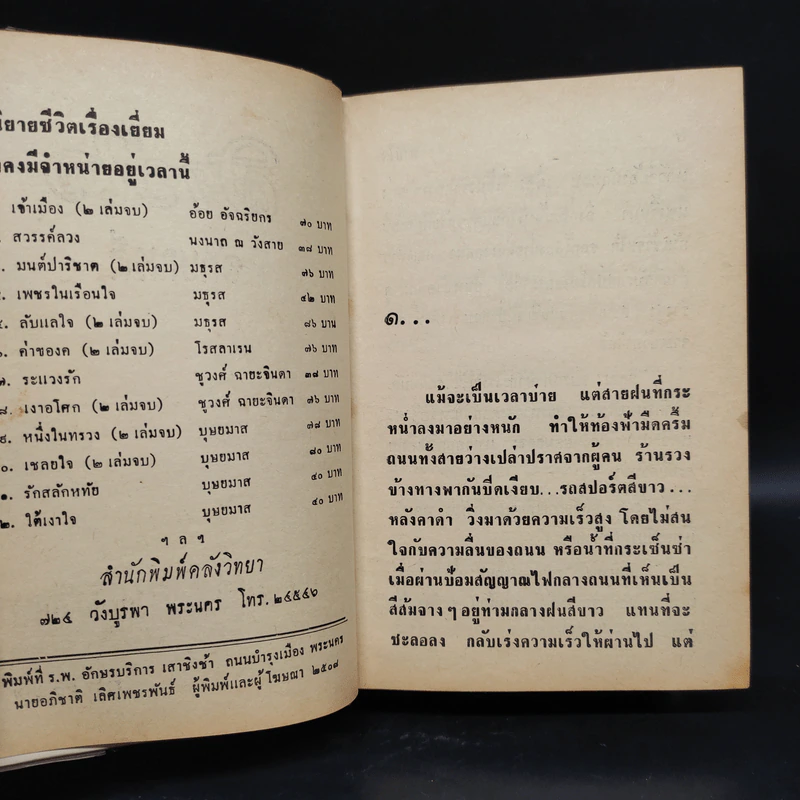 นิยายชีวิตเรื่องเยี่ยม
คงมีจำหน่ายอยู่เวลานี้
เข้าเมือง (๒ เล่มจบ) อ้อย อัจฉริยกร ๗๐ บาท
. สวรรค์ลวง นงนาถ ณ วังสาย ๓๘ บาท
. มนต์ปาริชาต (๒ เล่มจบ) มธุรส ๗๖ บาท
. เพชรในเรือนใจ มธุรส ๔๒ บาท
๕. ลับแลใจ (๒ เล่มจบ) มธุรส ๘๖ บาท
๖. ค่าของค (๒ เล่มจบ) โรสลาเรน ๗๖ บาท
๗. ระแวงรัก ชูวงศ์ ฉายะจินดา ๓๘ บาท
๘. เงาอโศก (๒ เล่มจบ) ชูวงศ์ ฉายะจินดา ๗๖ บาท
๙. หนึ่งในทรวง (๒ เล่มจบ) บุษยมาส ๗๘ บาท
๐. เชลยใจ (๒ เล่มจบ) บุษยมาส ๘๐ บาท
๑. รักสลักหทัย บุษยมาส ๔๐ บาท
๒. ใต้เงาใจ บุษยมาส ๔๐ บาท
ฯ ล ฯ
สำนักพิมพ์คลังวิทยา
๗๒๔ วังบูรพา พระนคร โทร. ๒๔๕๔๖
พิมพ์ที่ ร.พ. อักษรบริการ เสาชิงช้า ถนนบำรุงเมือง พระนคร
นายอภิชาติ เลิศเพชรพันธ์ ผู้พิมพ์และผู้โฆษณา ๒๕๐๗
๑...
แม้จะเป็นเวลาบ่าย แต่สายฝนที่กระ
หน่ำลงมาอย่างหนัก ทำให้ท้องฟ้ามืดครึ้ม
ถนนทั้งสายว่างเปล่าปราศจากผู้คน ร้านรวง
ข้างทางพากันปิดเงียบ...รถสปอร์ตสีขาว...
หลังคาดำ วิ่งมาด้วยความเร็วสูง โดยไม่สน
ใจกับความลื่นของถนน หรือน้ำที่กระเซ็นซ่า
เมื่อผ่านป้อมสัญญาณไฟกลางถนนที่เห็นเป็น
สีส้มจาง ๆ อยู่ท่ามกลางฝนสีขาว แทนที่จะ
ชะลอลง กลับเร่งความเร็วให้ผ่านไป แต่